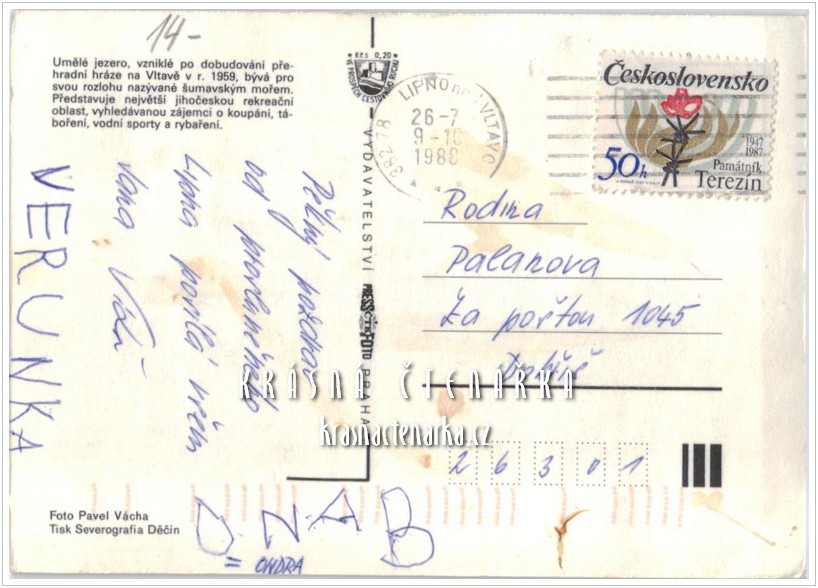 14-
Umělé jezero, vzniklé po dobudování pře-
hradní hráze na Vltavě v r. 1959, bývá pro
svou rozlohu nazývané šumavským mořem.
Představuje největší jihočeskou rekreační
oblast, vyhledávanou zájemci o koupání, tá-
boření, vodní sporty a rybaření.
Kčs 0,20
VE PROSPĚCH CESTOVNÍHO RUCHU
LIPNO nad VLTAVOU
26-7
9-10
1988
382 78
Československo
1947
1987
50h
Památník
Terezín
VYDAVATELSTVÍ PRESSFOTO PRAHA
Pěkný pozdrav
od
Lipna posílá všem
Jana
VERUNKA
Rodina
Palanova
Za poštou 1045
Dobříš
KRÁSNÁ ČTENÁŘKA
krasnactenarka.cz
26301
Foto Pavel Vácha
Tisk Severografia Děčín
B
A
Z
D
= ONDRA